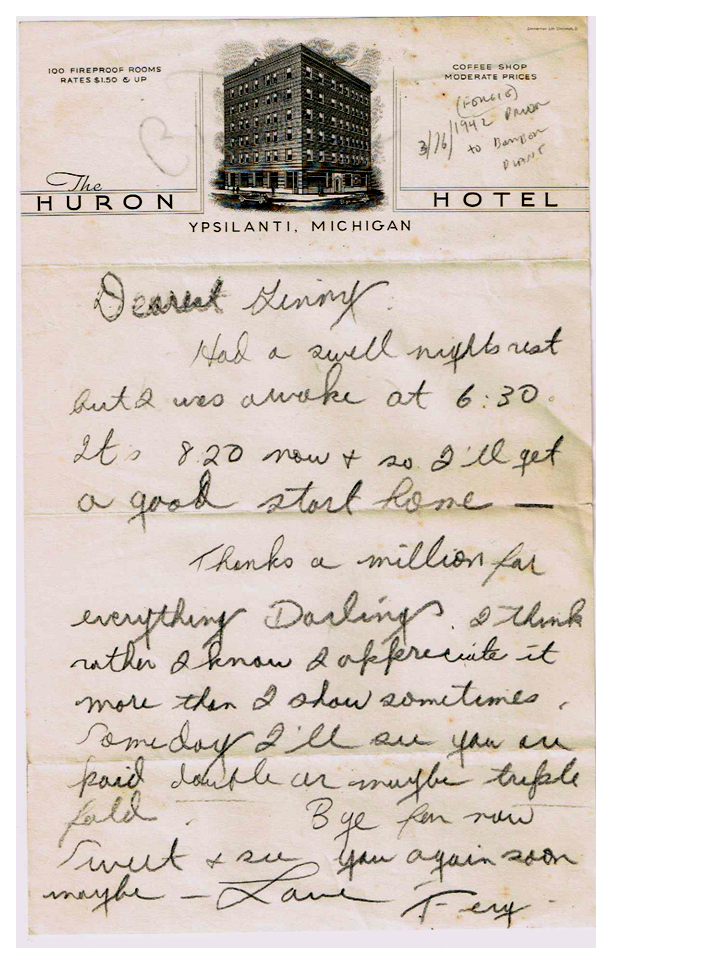 100 FIREPROOF ROOMS
RATES $1.50 & UP
COFFEE SHOP
MODERATE PRICES
3/26/1942
to
The
HURON HOTEL
YPSILANTI, MICHIGAN
Dearest Ginny:
Had a swell nights rest
but I was awake at 6:30.
It's 8:20 now & so I'll get
a good start home —
Thanks a million for
everything Darling. I think
rather I know I appreciate it
more than I show sometimes.
Someday I'll see you are
paid double or maybe triple
fold. Bye for now
Sweet & see you again soon
maybe - Love Ferg.